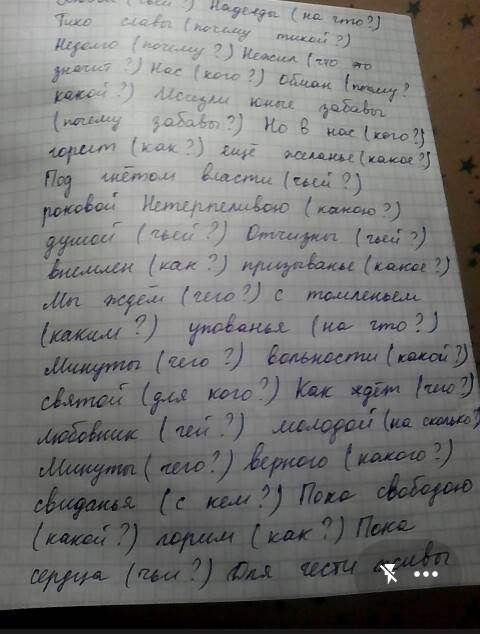 (чьей?) Надежды (на что?)
Тихо славы (почему тихой?)
Недолго (почему?) Нежил (что это
значит?) Нас (кого?) Обман (почему?
какой?) Исчезли юные забавы
(почему забавы?) Но в нас (кого?)
горит (как?) ещё желанье (какое?)
Под гнётом власти (чьей?)
роковой Нетерпеливою (какою?)
душой (чьей?) Отчизны (чьей?)
внемлем (как?) призыванье (какое?)
Мы ждём (чего?) с томленьем
(каким?) упованья (на что?)
Минуты (чего?) вольности (какой?)
святой (для кого?) Как ждёт (чего?)
любовник (чей?) молодой (на сколько?)
Минуты (чего?) верного (какого?)
свиданья (с кем?) Пока свободою
(какой?) горим (как?) Пока
сердца (чьи?) Для чести живы